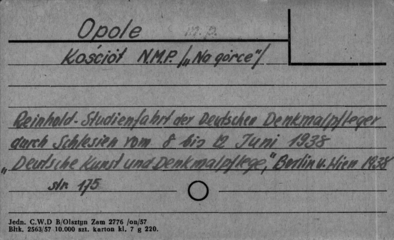 Opole m. p.
Kościół N.M.P. /„Na górce”/
Reinhold-Studienfahrt der Deutschen Denkmalpfleger
durch Schlesien vom 8 bis 12 Juni 1938
„Deutsche Kunst und Denkmalpflege,” Berlin u. Wien 1938
str. 175
Jedn. C.W.D B/Olsztyn Zam 2776 /on/57
Bltk. 2563/57 10.000 szt. karton kl. 7 g 220.